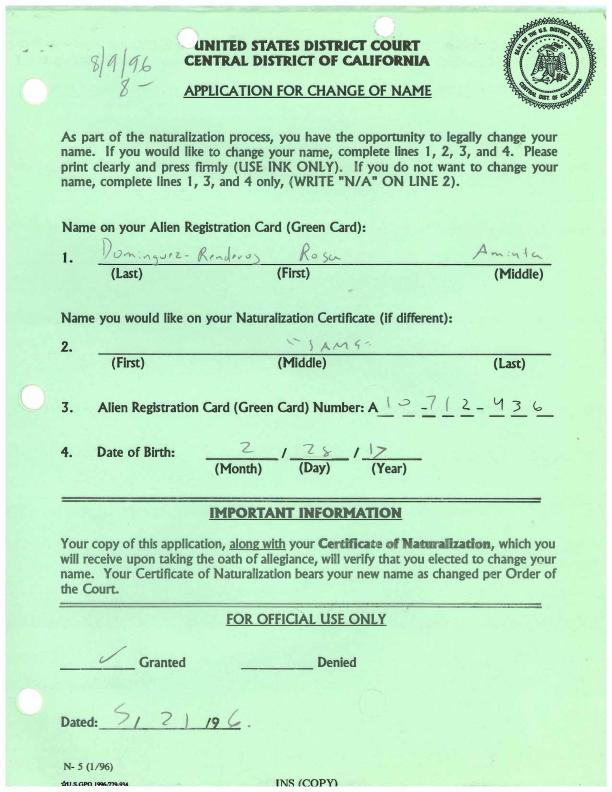 8/9/96
8-
UNITED STATES DISTRICT COURT
CENTRAL DISTRICT OF CALIFORNIA
SEAL OF THE U.S. DISTRICT COURT
CENTRAL DIST. OF CALIFORNIA
APPLICATION FOR CHANGE OF NAME
As part of the naturalization process, you have the opportunity to legally change your
name. If you would like to change your name, complete lines 1, 2, 3, and 4. Please
print clearly and press firmly (USE INK ONLY). If you do not want to change your
name, complete lines 1, 3, and 4 only, (WRITE "N/A" ON LINE 2).
Name on your Alien Registration Card (Green Card):
1. Dominguez-Renderos Rosa Aminta
(Last) (First) (Middle)
Name you would like on your Naturalization Certificate (if different):
2. "SAME"
(First) (Middle) (Last)
3. Alien Registration Card (Green Card) Number: A 10-712-436
4. Date of Birth: 2 / 28 / 17
(Month) (Day) (Year)
IMPORTANT INFORMATION
Your copy of this application, along with your Certificate of Naturalization, which you
will receive upon taking the oath of allegiance, will verify that you elected to change your
name. Your Certificate of Naturalization bears your new name as changed per Order of
the Court.
FOR OFFICIAL USE ONLY
✓ Granted Denied
Dated: 5/ 21 19 6.
N- 5 (1/96)
☆U.S.GPO 1996-779-934
INS (COPY)